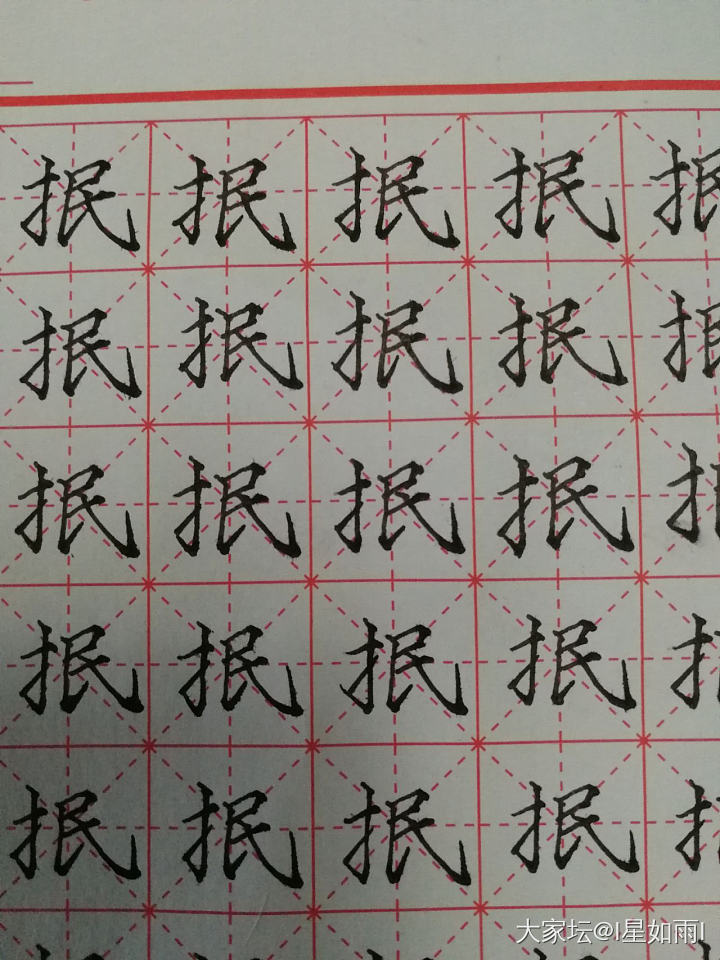 抿 抿 抿 抿 抿
抿 抿 抿 抿 抿
抿 抿 抿 抿 抿
抿 抿 抿 抿
抿 抿 抿 抿
大家坛@l星如雨l